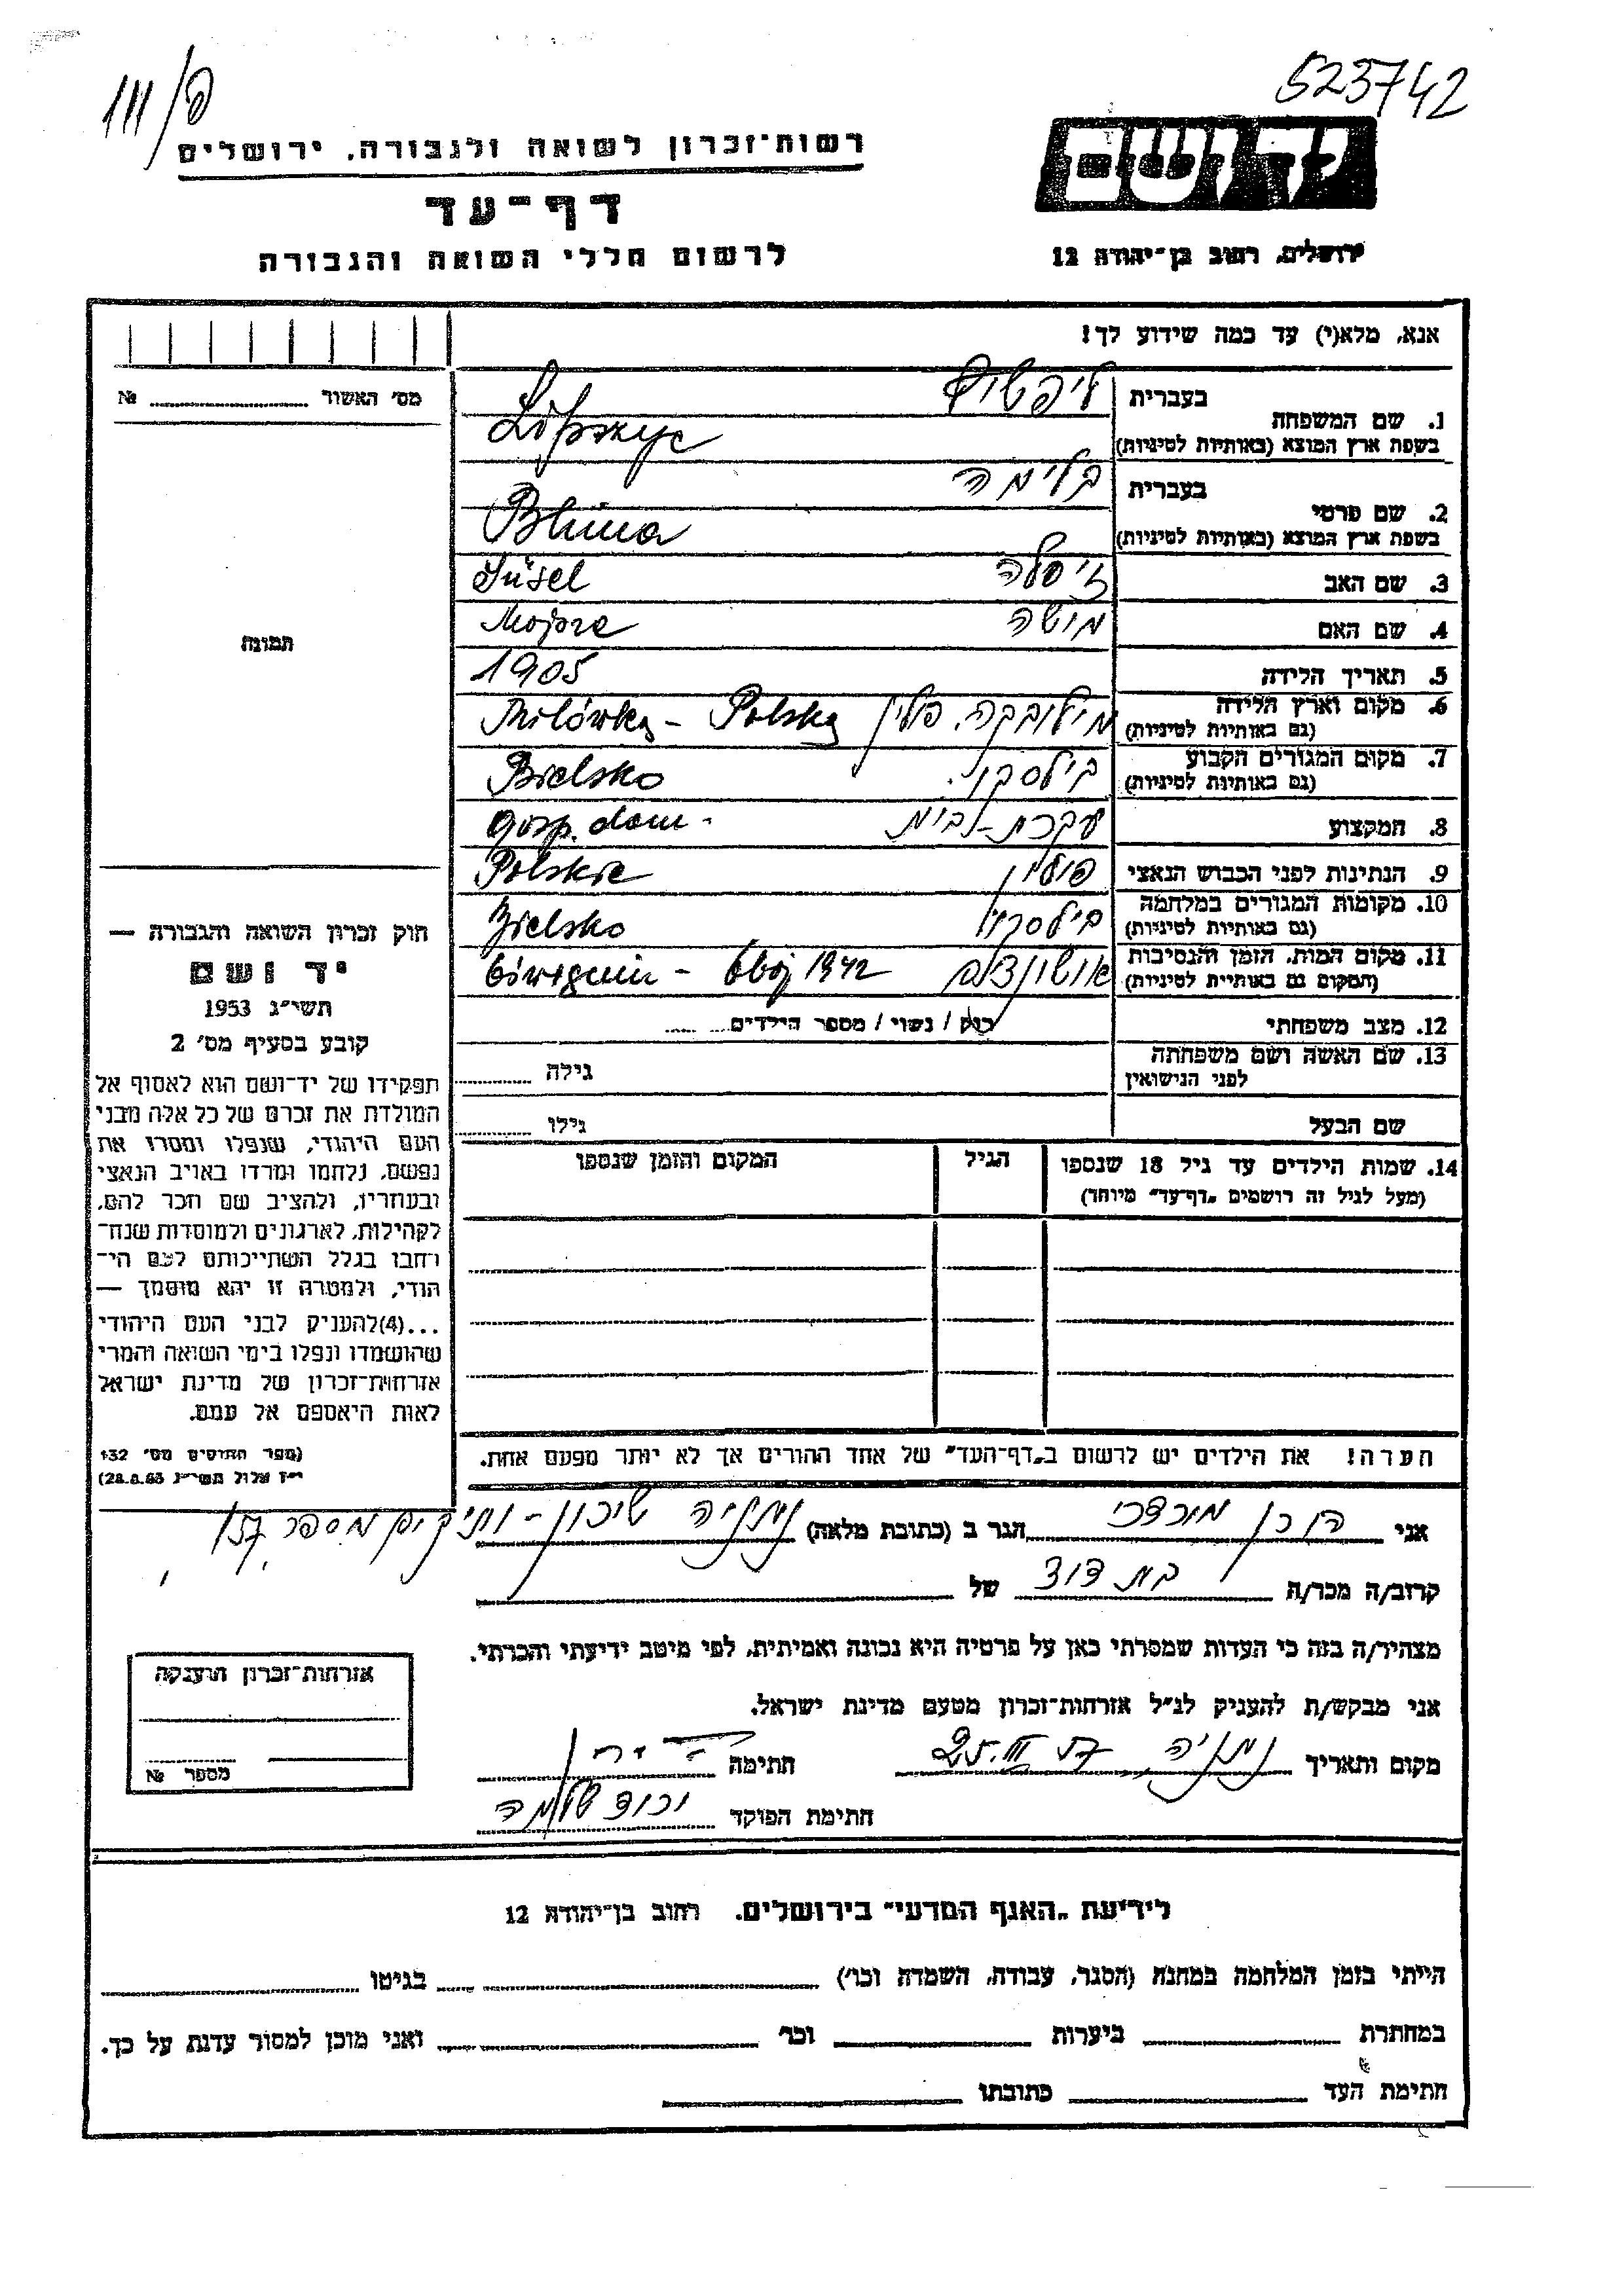 523742
פ/III
יד ושם
ירושלים, רחוב בן־יהודה 12
רשות־זכרון לשואה ולגבורה, ירושלים
דף־עד
לרשום חללי השואה והגבורה
אנא, מלא(י) עד כמה שידוע לך!
מס' האשור № 
1. שם המשפחה בעברית ליפשיץ
בשפת ארץ המוצא (באותיות לטיניות)
2. שם פרטי בעברית בלימה
בשפת ארץ המוצא (באותיות לטיניות) Blima
3. שם האב זיסלה Süsel
4. שם האם מושה
5. תאריך הלידה 1905
6. מקום וארץ הלידה מילובקה, פולין Milówka - Polska
(גם באותיות לטיניות)
7. מקום המגורים הקבוע בילסקו Bielsko
(גם באותיות לטיניות)
8. המקצוע עקרת-בית gosp. dom.
9. הנתינות לפני הכבוש הנאצי פולין Polskie
10. מקומות המגורים במלחמה בילסקו Bielsko
(גם באותיות לטיניות)
11. מקום המות, הזמן והנסיבות 1942
(המקום גם באותיות לטיניות)
12. מצב משפחתי רוק / נשוי / מספר הילדים
13. שם האשה ושם משפחתה לפני הנישואין גילה
שם הבעל גילו
14. שמות הילדים עד גיל 18 שנספו הגיל המקום והזמן שנספו
(מעל לגיל זה רושמים „דף־עד" מיוחד)
הערה! את הילדים יש לרשום ב„דף־העד" של אחד ההורים אך לא יותר מפעם אחת.
תמונה
חוק זכרון השואה והגבורה —
יד ושם
תשי״ג 1953
קובע בסעיף מס' 2
תפקידו של יד־ושם הוא לאסוף אל
המולדת את זכרם של כל אלה מבני
העם היהודי, שנפלו ומסרו את
נפשם, נלחמו ומרדו באויב הנאצי
ובעוזריו, ולהציב שם וזכר להם,
לקהילות, לארגונים ולמוסדות שנח־
רבו בגלל השתייכותם לעם הי־
הודי, ולמטרה זו יהא מוסמך —
...(4)להעניק לבני העם היהודי
שהושמדו ונפלו בימי השואה והמרי
אזרחות־זכרון של מדינת ישראל
לאות היאספם אל עמם.
(ספר החוקים מס' 132
י״ז אלול תשי״ג 28.8.53)
אני הורן מורדכי הגר ב (כתובת מלאה) נתניה שיכון-ותיקים מספר 157
קרוב/ה מכר/ה בת דוד של
מצהיר/ה בזה כי העדות שמסרתי כאן על פרטיה היא נכונה ואמיתית, לפי מיטב ידיעתי והכרתי.
אני מבקש/ת להעניק לנ״ל אזרחות־זכרון מטעם מדינת ישראל.
מקום ותאריך נתניה 25.III.57 חתימה
חתימת הפוקד
אזרחות־זכרון הוענקה
מספר №
לידיעת „האגף המדעי" בירושלים, רחוב בן־יהודה 12
הייתי בזמן המלחמה במחנה (הסגר, עבודה, השמדה וכו') בגיטו
במחתרת ביערות וכו' ואני מוכן למסור עדות על כך.
חתימת העד כתובתו